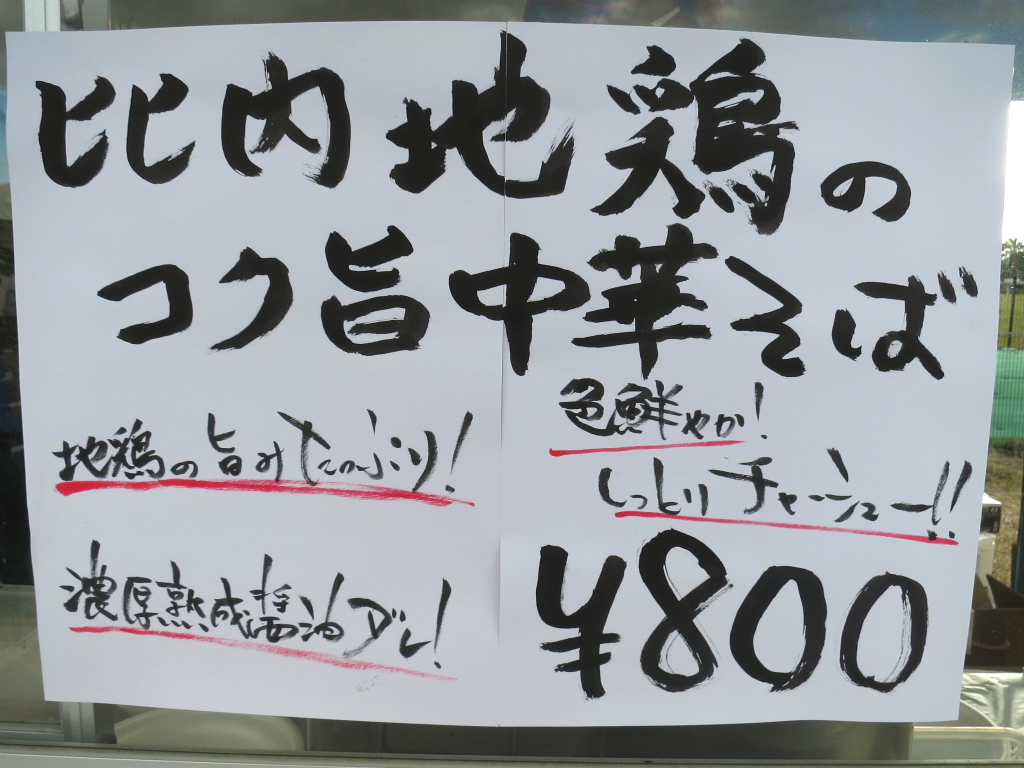 比内地鶏の
コク旨中華そば
地鶏の旨みたっぷり!
色鮮やか!
しっとりチャーシュー!!
濃厚熟成醤油ダレ!
¥800